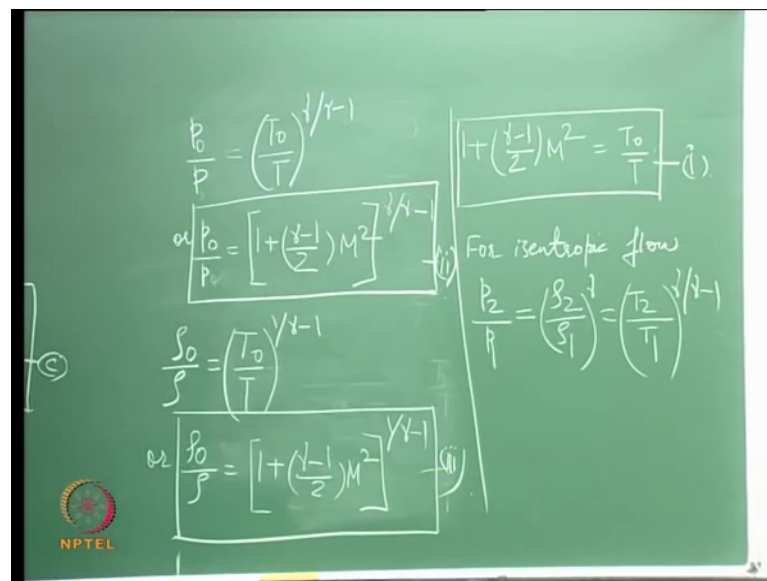 p₀/p = (T₀/T)^γ/γ-1
or p₀/p = [1+(γ-1/2)M²]^γ/γ-1 —(ii)
ρ₀/ρ = (T₀/T)^1/γ-1
or ρ₀/ρ = [1+(γ-1/2)M²]^1/γ-1 —(iii)
1+(γ-1/2)M² = T₀/T —(i)
For isentropic flow
p₂/p₁ = (ρ₂/ρ₁)^γ = (T₂/T₁)^γ/γ-1
—Ⓒ
NPTEL